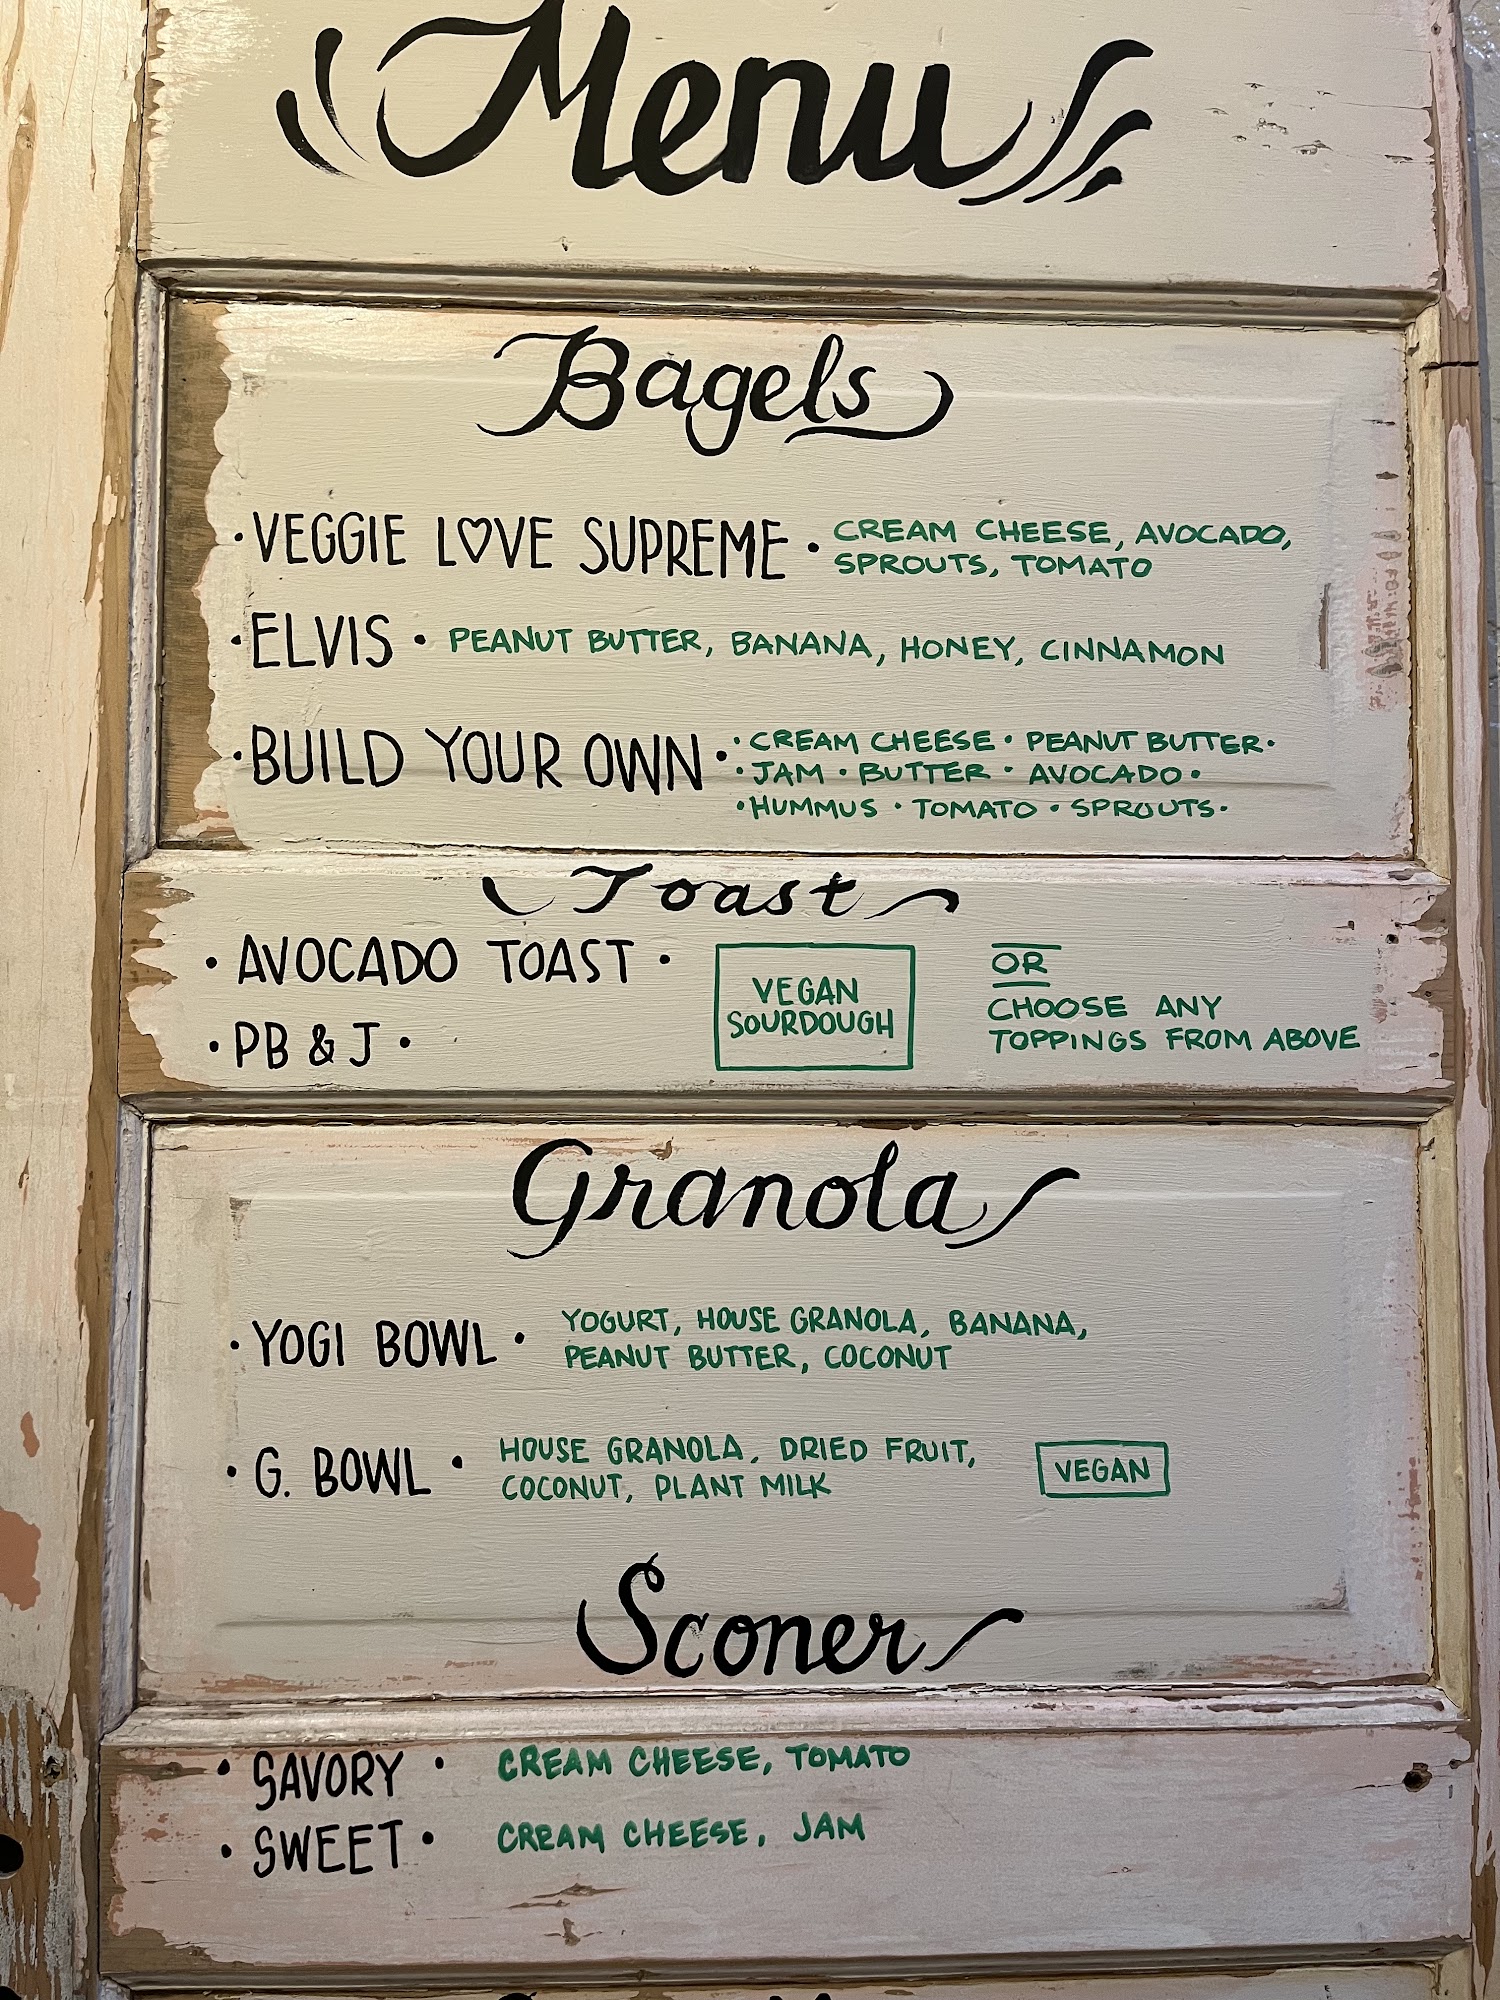 Menu
Bagels
• VEGGIE L♡VE SUPREME • CREAM CHEESE, AVOCADO,
SPROUTS, TOMATO
• ELVIS • PEANUT BUTTER, BANANA, HONEY, CINNAMON
• BUILD YOUR OWN • • CREAM CHEESE • PEANUT BUTTER •
• JAM • BUTTER • AVOCADO •
• HUMMUS • TOMATO • SPROUTS •
Toast
• AVOCADO TOAST •
• PB & J •
VEGAN
SOURDOUGH
OR
CHOOSE ANY
TOPPINGS FROM ABOVE
Granola
• YOGI BOWL • YOGURT, HOUSE GRANOLA, BANANA,
PEANUT BUTTER, COCONUT
• G. BOWL • HOUSE GRANOLA, DRIED FRUIT,
COCONUT, PLANT MILK
VEGAN
Sconer
• SAVORY • CREAM CHEESE, TOMATO
• SWEET • CREAM CHEESE, JAM